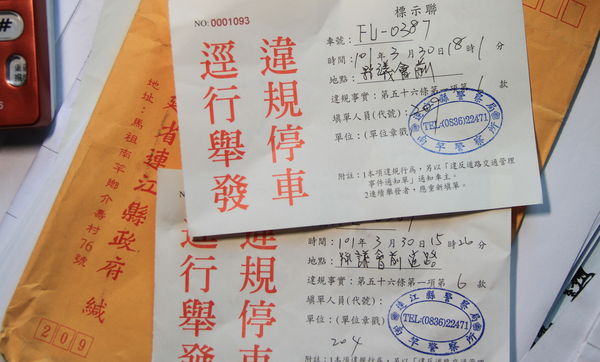 NO:0001093
標示聯
違規停車
逕行舉發
車號: FU-0387
時間: 101年3月30日18時1分
地點: 縣議會前
違規事實: 第五十六條第一項第1款
填單人員(代號):
單位: (單位章戳)
連江縣警察局
TEL:(0836)22471
南竿警察所
附註: 1本項違規行為, 另以「違反道路交通管理
事件通知單」通知車主。
2連續舉發者, 應重新填單。
違規停車
逕行舉發
時間: 101年3月30日15時26分
地點: 縣議會前道路
違規事實: 第五十六條第一項第6款
填單人員(代號):
單位: (單位章戳)
204
連江縣警察局
TEL:(0836)22471
南竿警察所
附註: 1本項違規行為, 另以「違反道路交通管理
省連江縣政府 緘
地址: 馬祖南竿鄉介壽村76號
209